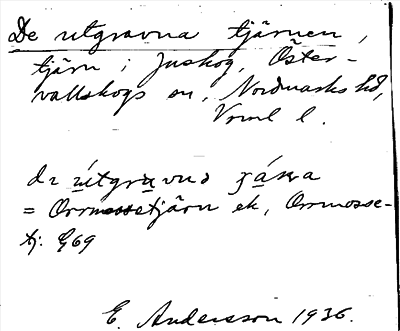 De utgravna tjärnen,
tjärn i Juskog, Öster-
vallskogs sn, Nordmarks hd,
Vrml l.
= Orrmossetjärn ek, Orrmosse-
tj. G69
E. Andersson 1936.